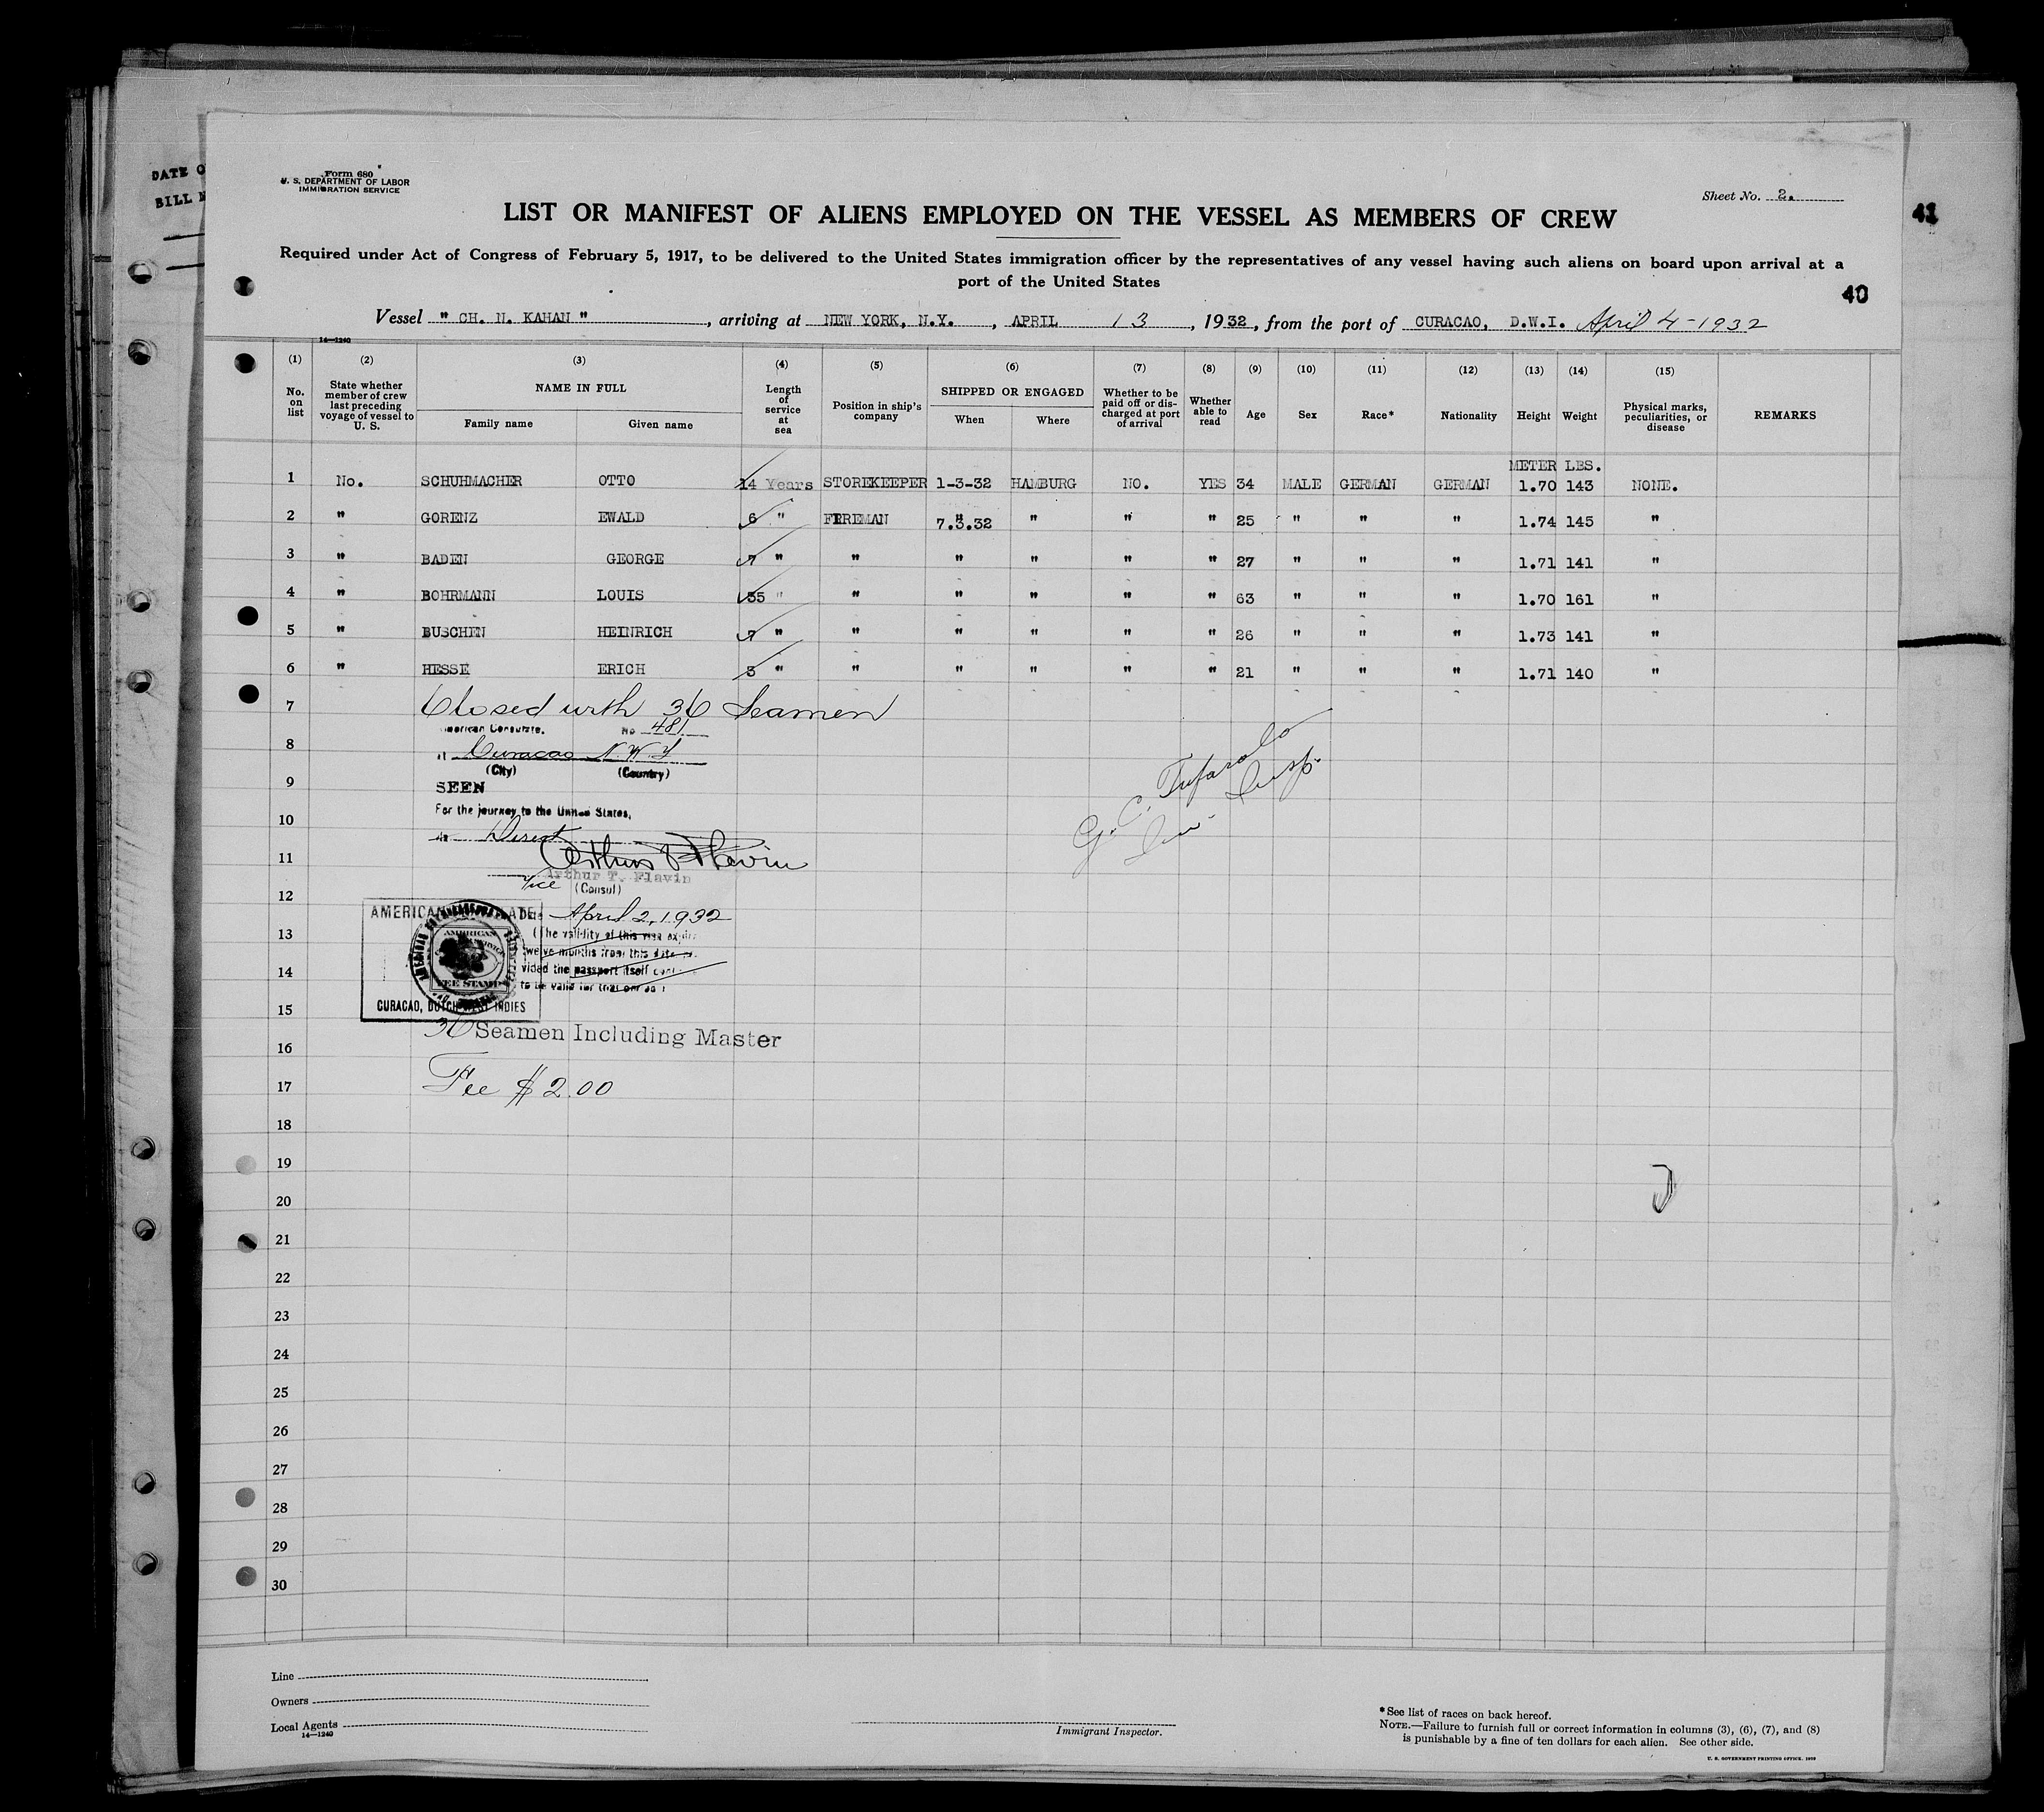 DATE O
BILL N
Form 680
U. S. DEPARTMENT OF LABOR
IMMIGRATION SERVICE
Sheet No. 2.
41
LIST OR MANIFEST OF ALIENS EMPLOYED ON THE VESSEL AS MEMBERS OF CREW
Required under Act of Congress of February 5, 1917, to be delivered to the United States immigration officer by the representatives of any vessel having such aliens on board upon arrival at a
port of the United States
40
Vessel " CH. N. KAHAN ", arriving at NEW YORK, N.Y., APRIL 13, 1932, from the port of CURACAO, D.W.I. April 4-1932
14—1240
(1) (2) (3) (4) (5) (6) (7) (8) (9) (10) (11) (12) (13) (14) (15)
No. on list
State whether member of crew last preceding voyage of vessel to U. S.
NAME IN FULL
Family name Given name
Length of service at sea
Position in ship's company
SHIPPED OR ENGAGED
When Where
Whether to be paid off or discharged at port of arrival
Whether able to read
Age
Sex
Race*
Nationality
Height
Weight
Physical marks, peculiarities, or disease
REMARKS
METER LBS.
1 No. SCHUHMACHER OTTO 14 Years STOREKEEPER 1-3-32 HAMBURG NO. YES 34 MALE GERMAN GERMAN 1.70 143 NONE.
2 " GORENZ EWALD 6 " FIREMAN 7.3.32 " " " 25 " " " 1.74 145 "
3 " BADEN GEORGE 7 " " " " " " 27 " " " 1.71 141 "
4 " BOHRMANN LOUIS 35 " " " " " " 63 " " " 1.70 161 "
5 " BUSCHEN HEINRICH 7 " " " " " " 26 " " " 1.73 141 "
6 " HESSE ERICH 3 " " " " " " 21 " " " 1.71 140 "
7 Closed with 36 Seamen
American Consulate. No 481
8 at Curacao N.W.I
(City) (Country)
9 SEEN
For the journey to the United States,
10 Direct
11 Arthur T. Flavin
Arthur T. Flavin
Vice (Consul)
12
AMERICAN CONSULATE
April 2, 1932
13 (The validity of this visa expires
twelve months from this date
14 vided the passport itself
to be valid for that period
AMERICAN
FEE STAMP
15 CURACAO, DUTCH WEST INDIES
36 Seamen Including Master
16
17 Fee $2.00
G. C. Tufarolo
Imm. Insp.
18
19
20
21
22
23
24
25
26
27
28
29
30
Line
Owners
Local Agents
14—1240
Immigrant Inspector.
*See list of races on back hereof.
NOTE.—Failure to furnish full or correct information in columns (3), (6), (7), and (8)
is punishable by a fine of ten dollars for each alien. See other side.
U. S. GOVERNMENT PRINTING OFFICE.